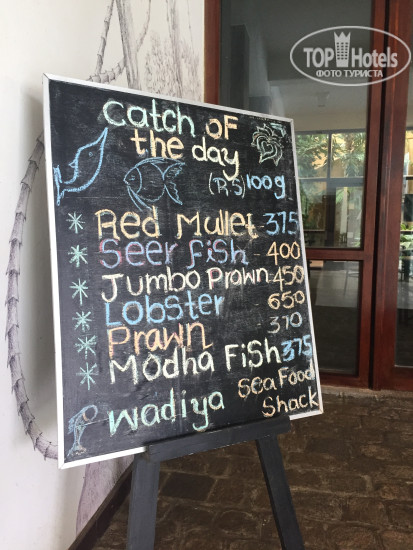 TOP Hotels
ФОТО ТУРИСТА
catch of
the day
(RS) 100g
Red Mullet 375
Seer fish - 400
Jumbo Prawn - 450
Lobster - 650
Prawn - 370
Modha Fish 375
Wadiya Sea Food
Shack